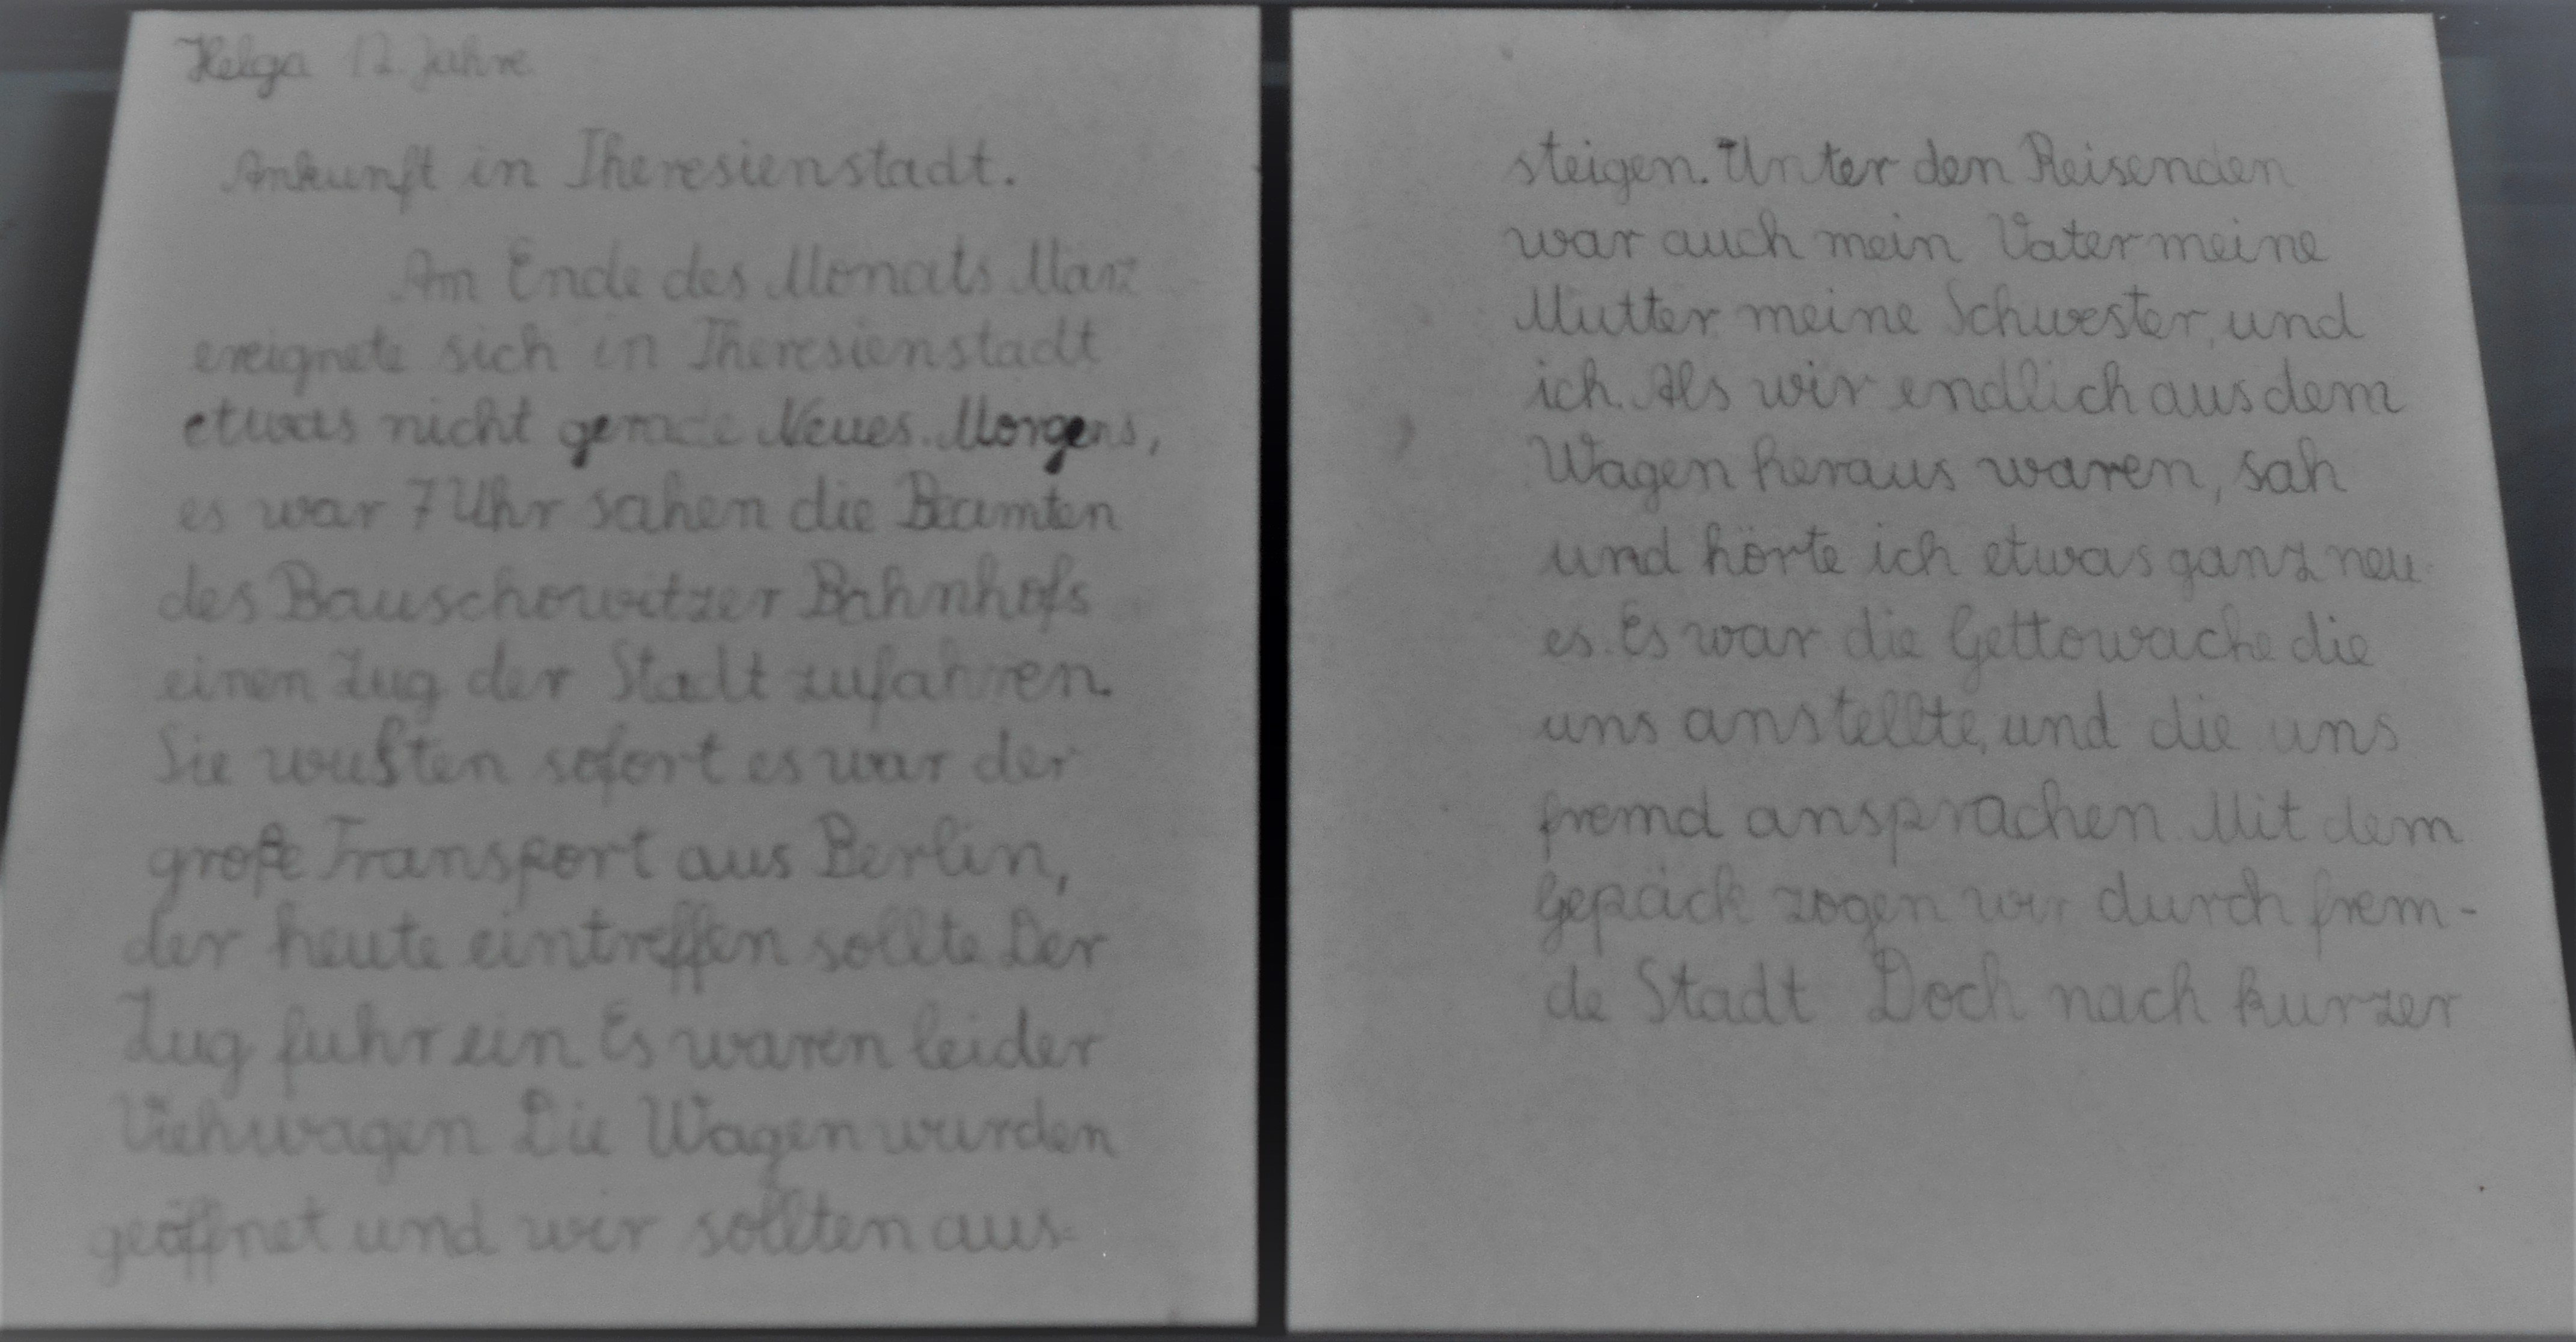 Helga 12 Jahre
Ankunft in Theresienstadt.
Am Ende des Monats März
ereignete sich in Theresienstadt
etwas nicht gerade Neues. Morgens,
es war 7 Uhr sahen die Beamten
des Bauschowitzer Bahnhofs
einen Zug der Stadt zufahren.
Sie wußten sofort es war der
große Transport aus Berlin,
der heute eintreffen sollte Der
Zug fuhr ein Es waren leider
Viehwagen Die Wagen wurden
geöffnet und wir sollten aus-
steigen. Unter den Reisenden
war auch mein Vater meine
Mutter meine Schwester, und
ich. Als wir endlich aus dem
Wagen heraus waren, sah
und hörte ich etwas ganz neu
es. Es war die Gettowache die
uns anstellte, und die uns
fremd ansprachen Mit dem
Gepäck zogen wir durch frem-
de Stadt Doch nach kurzer